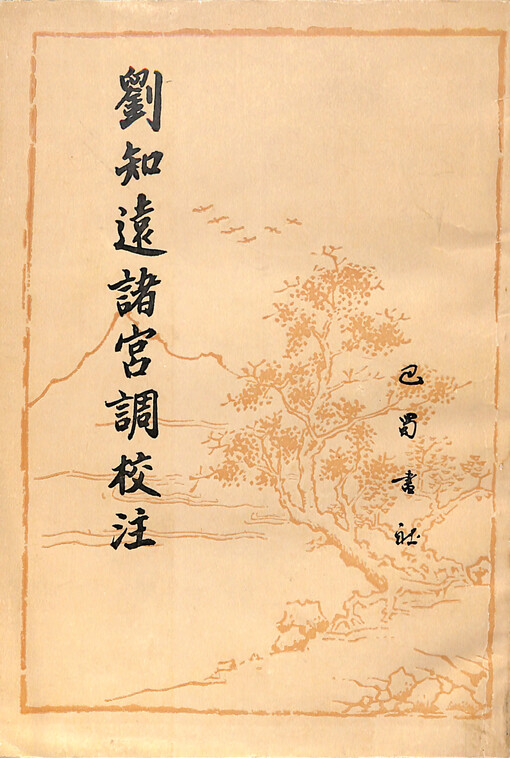 劉知遠諸宮調校注
巴蜀書社